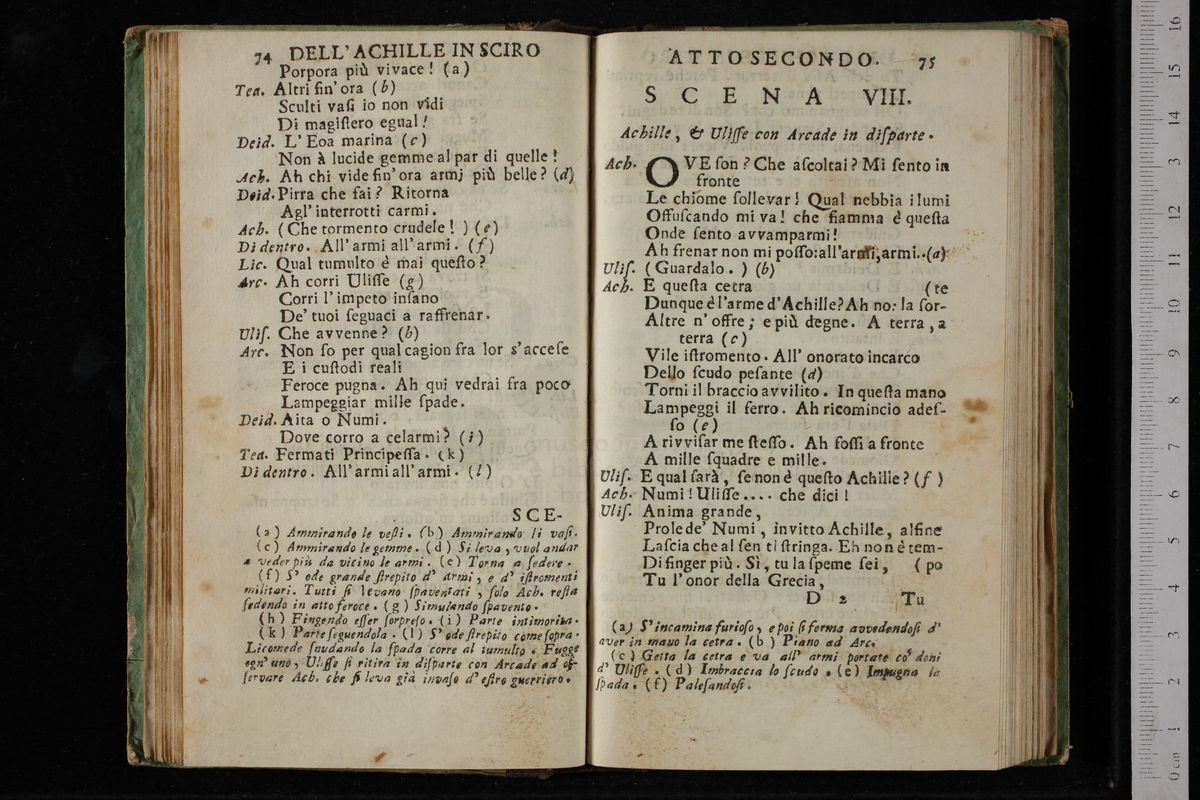 74 DELL' ACHILLE IN SCIRO
Porpora più vivace! (a)
Tea. Altri ſin' ora (b)
Sculti vaſi io non vidi
Di magiſtero egual!
Deid. L' Eoa marina (c)
Non à lucide gemme al par di quelle!
Ach. Ah chi vide ſin' ora armj più belle? (d)
Deid. Pirra che fai? Ritorna
Agl' interrotti carmi.
Ach. (Che tormento crudele!) (e)
Di dentro. All' armi all' armi. (f)
Lic. Qual tumulto è mai queſto?
Arc. Ah corri Uliſſe (g)
Corri l' impeto inſano
De' tuoi ſeguaci a raffrenar.
Uliſ. Che avvenne? (h)
Arc. Non ſo per qual cagion fra lor s' acceſe
E i cuſtodi reali
Feroce pugna. Ah qui vedrai fra poco
Lampeggiar mille ſpade.
Deid. Aita o Numi.
Dove corro a celarmi? (i)
Tea. Fermati Principeſſa. (k)
Di dentro. All' armi all' armi. (l)
SCE-
(a) Ammirando le veſti. (b) Ammirando li vaſi.
(c) Ammirando le gemme. (d) Si leva, vuol andar
a veder più da vicino le armi. (e) Torna a ſedere.
(f) S' ode grande ſtrepito d' armi, e d' iſtromenti
militari. Tutti ſi levano ſpaventati, ſolo Ach. reſta
ſedendo in atto feroce. (g) Simulando ſpavento.
(h) Fingendo eſſer ſorpreſo. (i) Parte intimorita.
(k) Parte ſeguendola. (l) S' ode ſtrepito come ſopra.
Licomede ſnudando la ſpada corre al tumulto. Fugge
ogn' uno, Uliſſe ſi ritira in diſparte con Arcade ad oſ-
ſervare Ach. che ſi leva già invaſo d' eſtro guerriero.
ATTO SECONDO. 75
SCENA VIII.
Achille, & Uliſſe con Arcade in diſparte.
Ach. OVE ſon? Che aſcoltai? Mi ſento in
fronte
Le chiome ſollevar! Qual nebbia i lumi
Offuſcando mi va! che fiamma è queſta
Onde ſento avvamparmi!
Ah frenar non mi poſſo: all' armi, armi. (a)
Uliſ. (Guardalo.) (b)
Ach. E queſta cetra (te
Dunque è l'arme d'Achille? Ah no: la ſor-
Altre n' offre; e più degne. A terra, a
terra (c)
Vile iſtromento. All' onorato incarco
Dello ſcudo peſante (d)
Torni il braccio avvilito. In queſta mano
Lampeggi il ferro. Ah ricomincio adeſ-
ſo (e)
A rivviſar me ſteſſo. Ah foſſi a fronte
A mille ſquadre e mille.
Uliſ. E qual ſarà, ſe non è queſto Achille? (f)
Ach. Numi! Uliſſe.... che dici!
Uliſ. Anima grande,
Prole de' Numi, invitto Achille, alfine
Laſcia che al ſen ti ſtringa. Eh non è tem-
Di finger più. Sì, tu la ſpeme ſei, (po
Tu l'onor della Grecia,
D 2 Tu
(a) S' incamina furioſo, e poi ſi ferma avvedendoſi d'
aver in mano la cetra. (b) Piano ad Arc.
(c) Getta la cetra e va all' armi portate co' doni
d' Uliſſe. (d) Imbraccia lo ſcudo. (e) Impugna la
ſpada. (f) Paleſandoſi.
0 cm 1 2 3 4 5 6 7 8 9 10 11 12 13 14 15 16